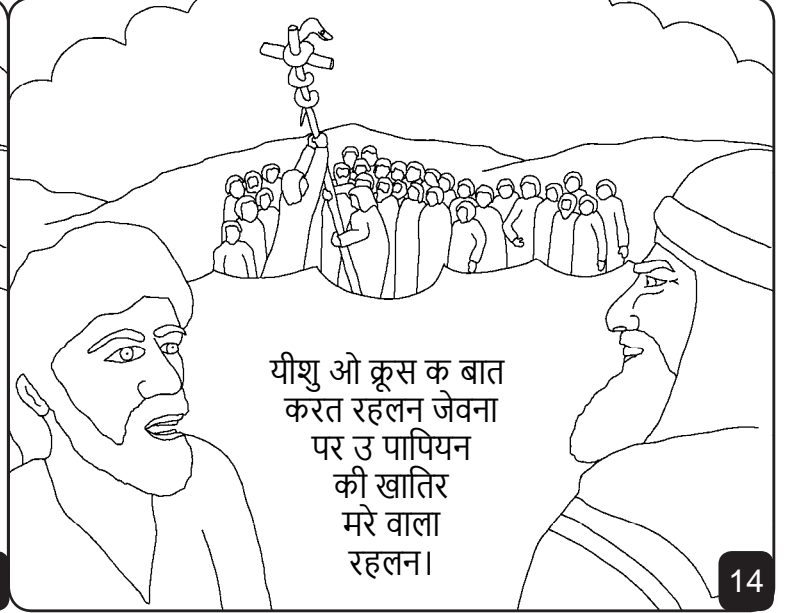 यीशु ओ क्रूस क बात
करत रहलन जेवना
पर उ पापियन
की खातिर
मरे वाला
रहलन।
14